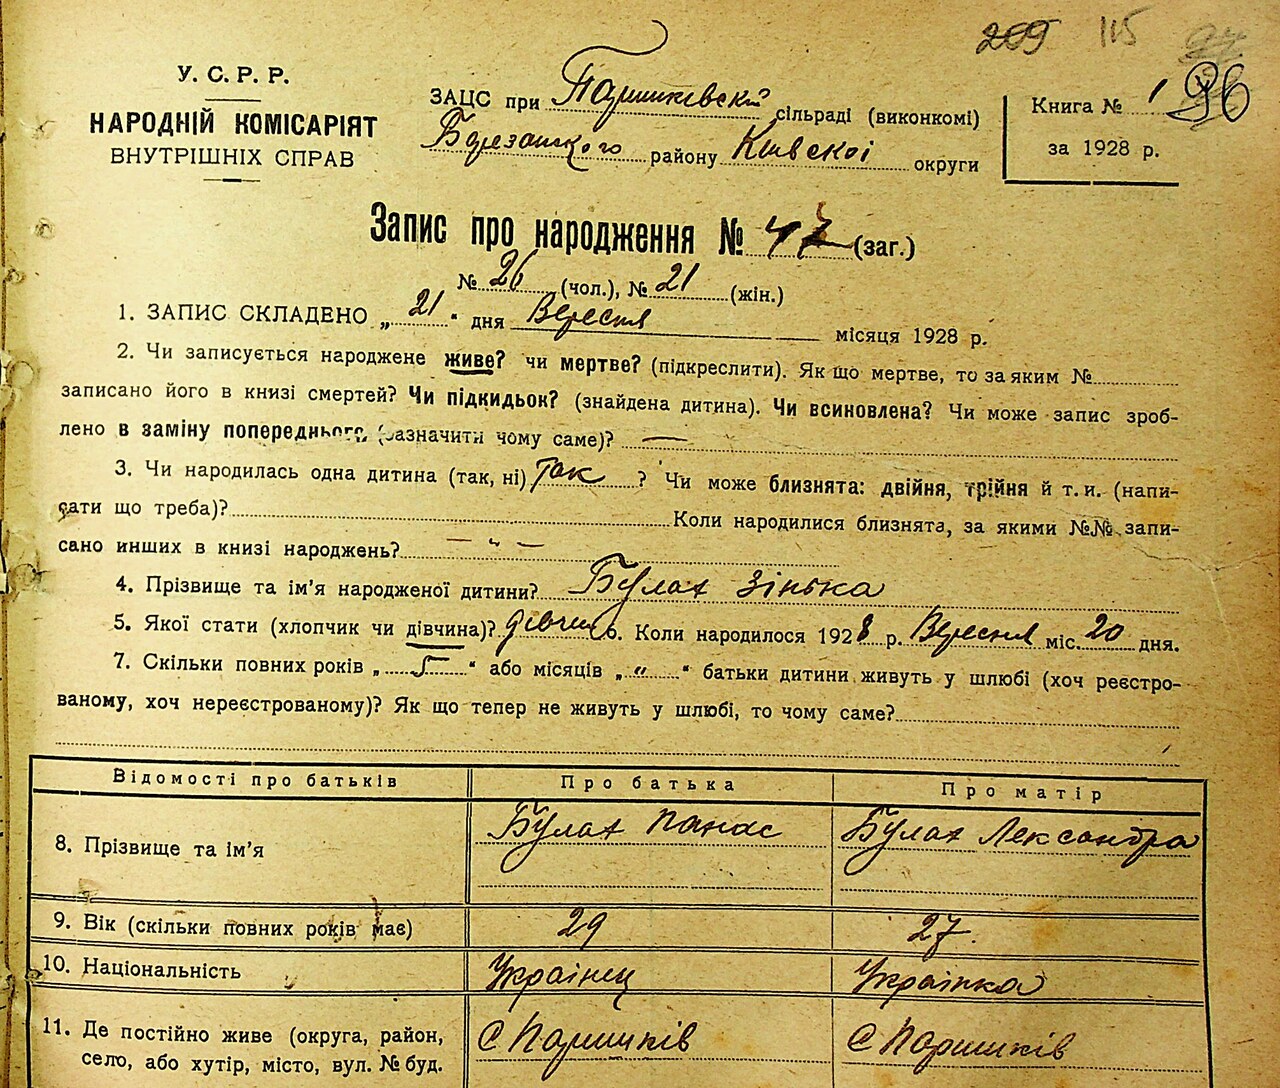 209 115
96
У. С. Р. Р.
НАРОДНІЙ КОМІСАРІЯТ
ВНУТРІШНІХ СПРАВ
ЗАЦС при Паришківській сільраді (виконкомі)
Березанського району Київскої округи
Книга № 1
за 1928 р.
Запис про народження № 47 (заг.)
№ 26 (чол.), № 21 (жін.)
1. ЗАПИС СКЛАДЕНО „ 21 “ дня Вересня місяця 1928 р.
2. Чи записується народжене живе? чи мертве? (підкреслити). Як що мертве, то за яким №
записано його в книзі смертей? Чи підкидьок? (знайдена дитина). Чи всиновлена? Чи може запис зроб-
лено в заміну попереднього, (зазначити чому саме)? —
3. Чи народилась одна дитина (так, ні) так ? Чи може близнята: двійня, трійня й т. и. (напи-
сати що треба)? Коли народилися близнята, за якими №№ запи-
сано инших в книзі народжень? — „ —
4. Прізвище та ім’я народженої дитини? Булах Зінька
5. Якої статі (хлопчик чи дівчина)? дівчина 6. Коли народилося 1928 р. Вересня міс. 20 дня.
7. Скільки повних років „ 5 “ або місяців „ “ “ батьки дитини живуть у шлюбі (хоч реєстро-
ваному, хоч нереєстрованому)? Як що тепер не живуть у шлюбі, то чому саме?
Відомості про батьків Про батька Про матір
8. Прізвище та ім’я Булах Панас Булах Лександра
9. Вік (скільки повних років має) 29 27
10. Національність Українец Українка
11. Де постійно живе (округа, район, С Паришків С Паришків
село, або хутір, місто, вул. № буд.